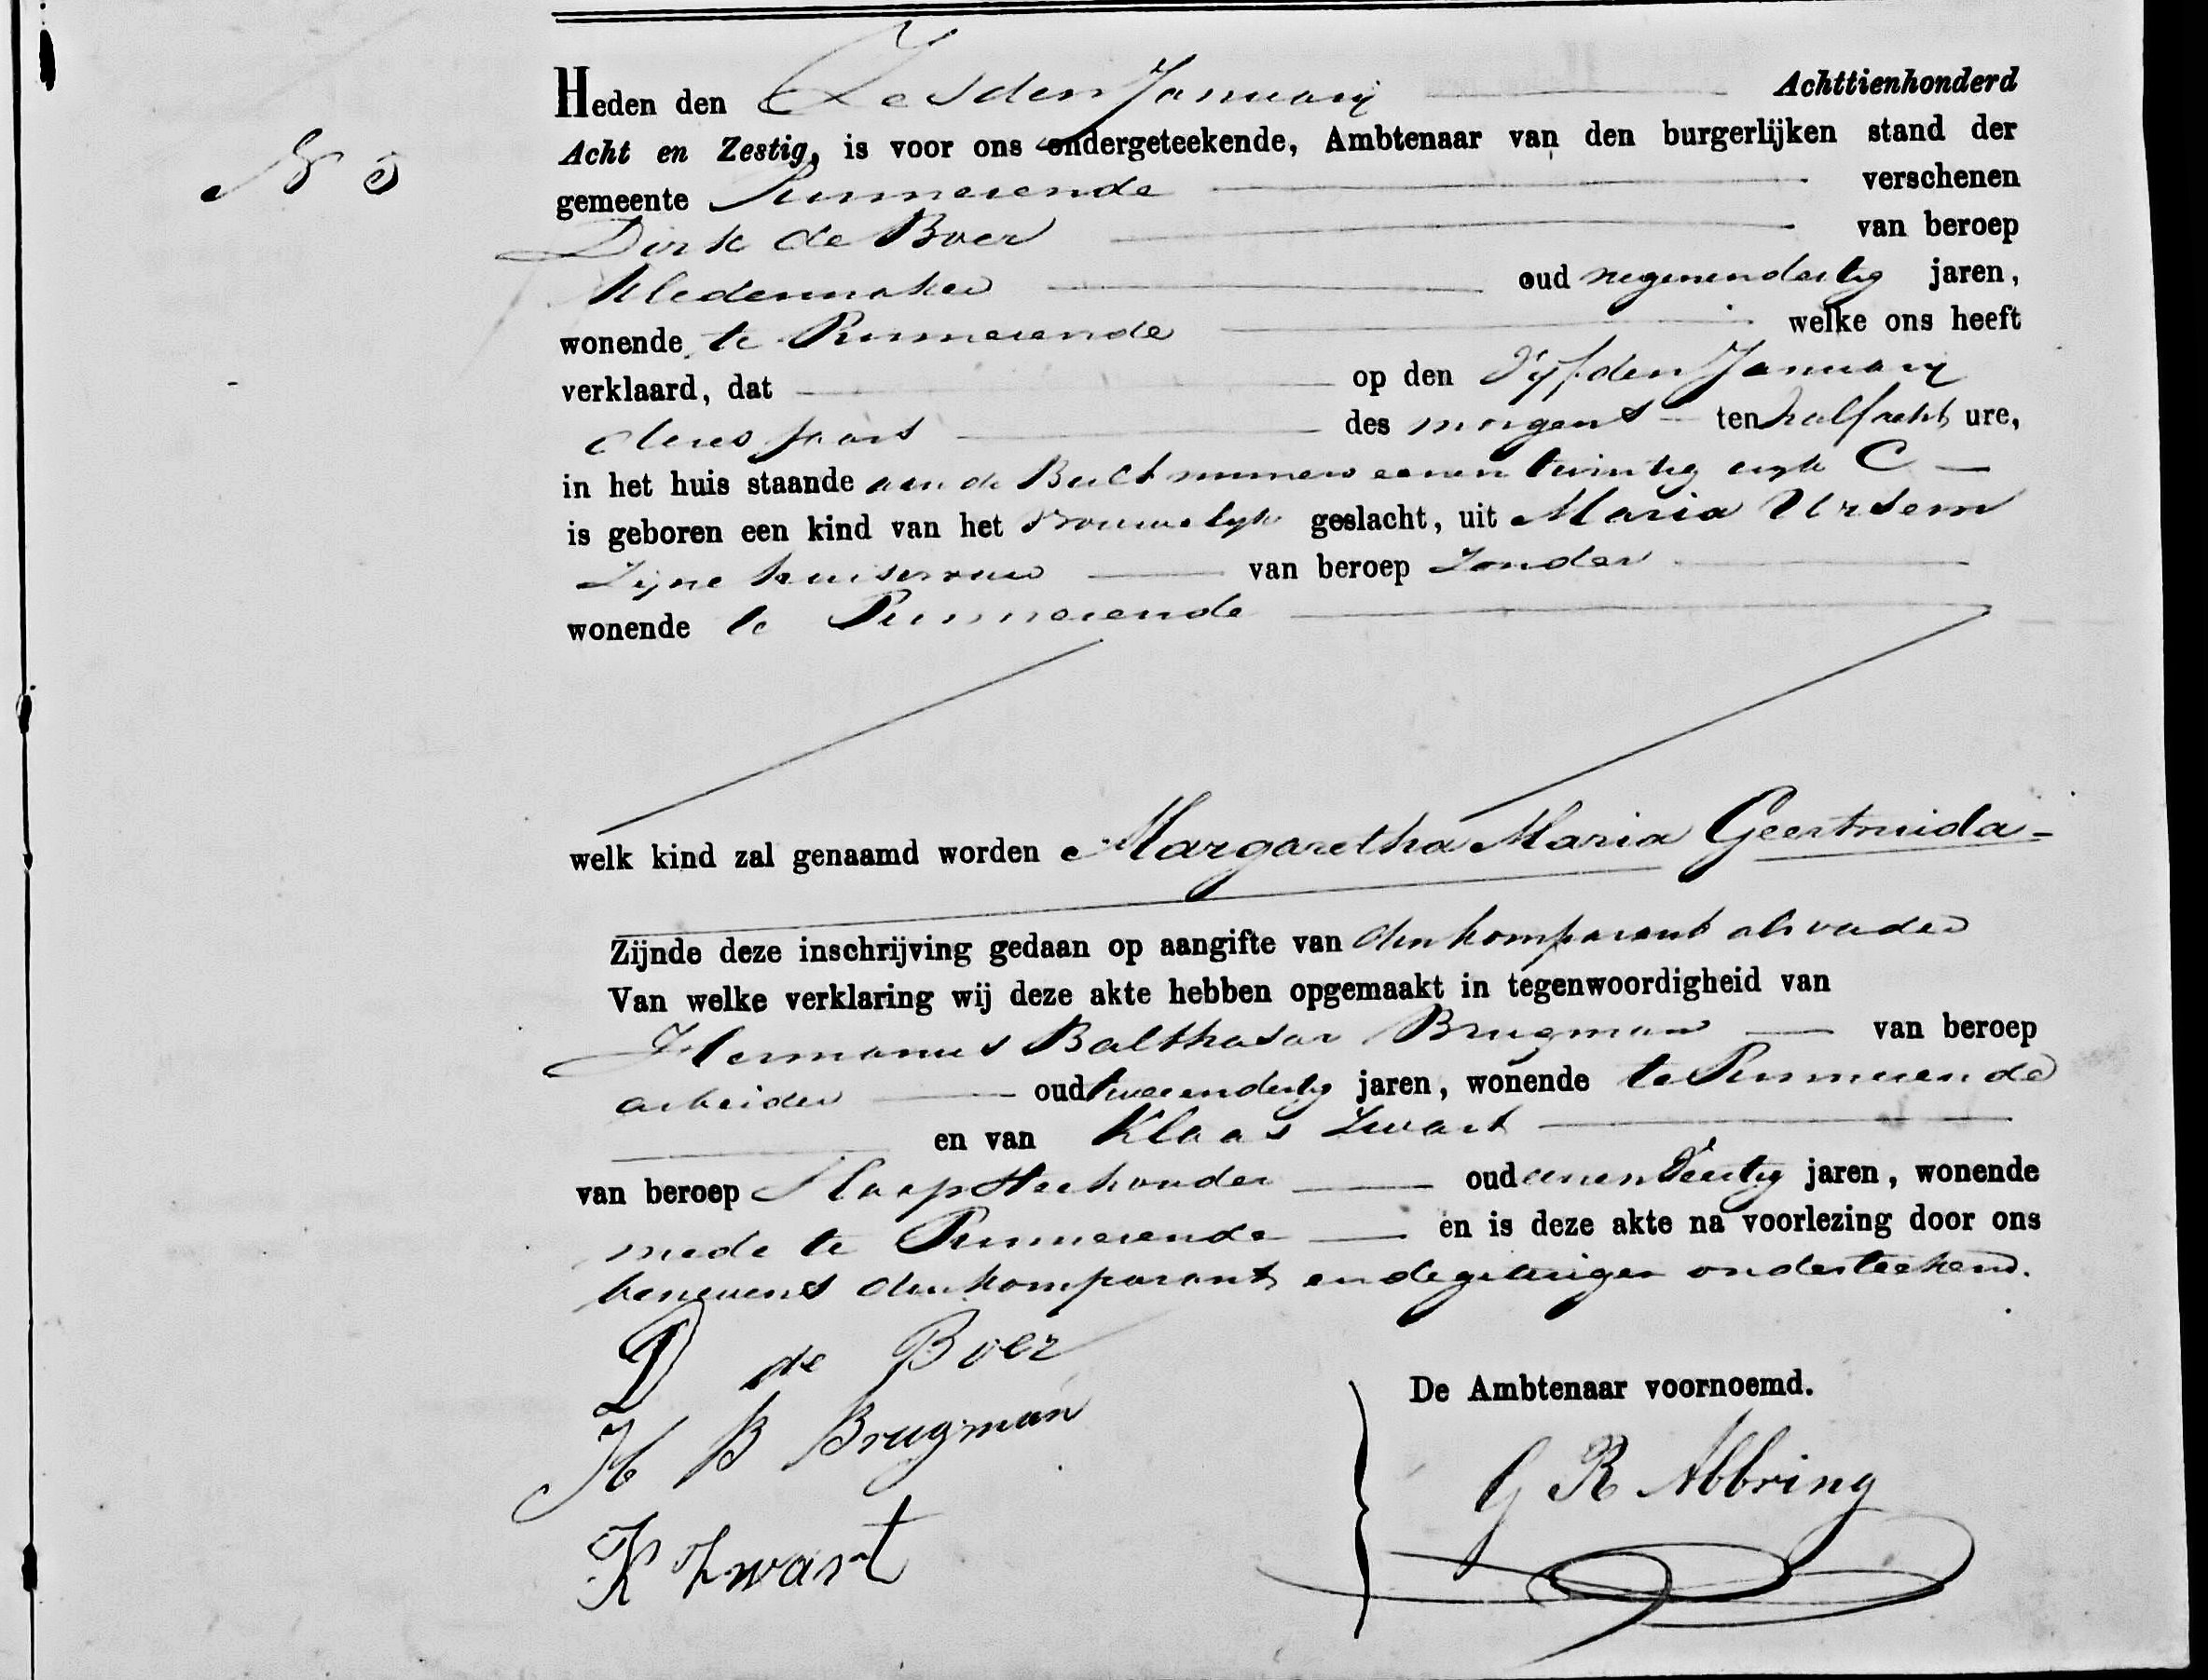 Heden den Zesden Januarij Achttienhonderd
N 5
Acht en Zestig, is voor ons ondergeteekende, Ambtenaar van den burgerlijken stand der
gemeente Purmerende verschenen
Dirk de Boer van beroep
Kledermaker oud negenendertig jaren,
wonende te Purmerende welke ons heeft
verklaard, dat op den Vijfden Januarij
dezes jaars des morgens ten half acht ure,
in het huis staande aan de Bult nummer eenentwintig wijk C
is geboren een kind van het vrouwelijk geslacht, uit Maria Ursem
Zijne huisvrouw van beroep Zonder
wonende te Purmerende
welk kind zal genaamd worden Margaretha Maria Geertruida
Zijnde deze inschrijving gedaan op aangifte van den komparant als vader
Van welke verklaring wij deze akte hebben opgemaakt in tegenwoordigheid van
Hermanus Balthasar Brugman van beroep
arbeider oud tweeendertig jaren, wonende te Purmerende
en van Klaas Zwart
van beroep Slaapsteehouder oud eenenveertig jaren, wonende
mede te Purmerende en is deze akte na voorlezing door ons
benevens den komparant en de getuigen onderteekend.
D de Boer
De Ambtenaar voornoemd.
H B Brugman
G R Abbring
K Zwart